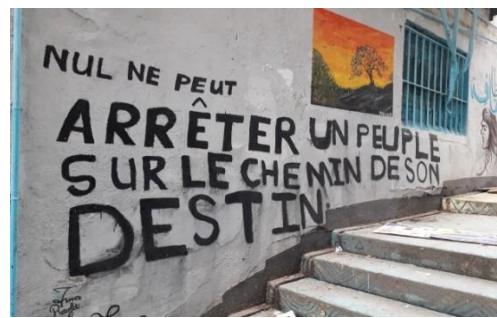 NUL NE PEUT
ARRÊTER UN PEUPLE
SUR LE CHEMIN DE SON
DESTIN